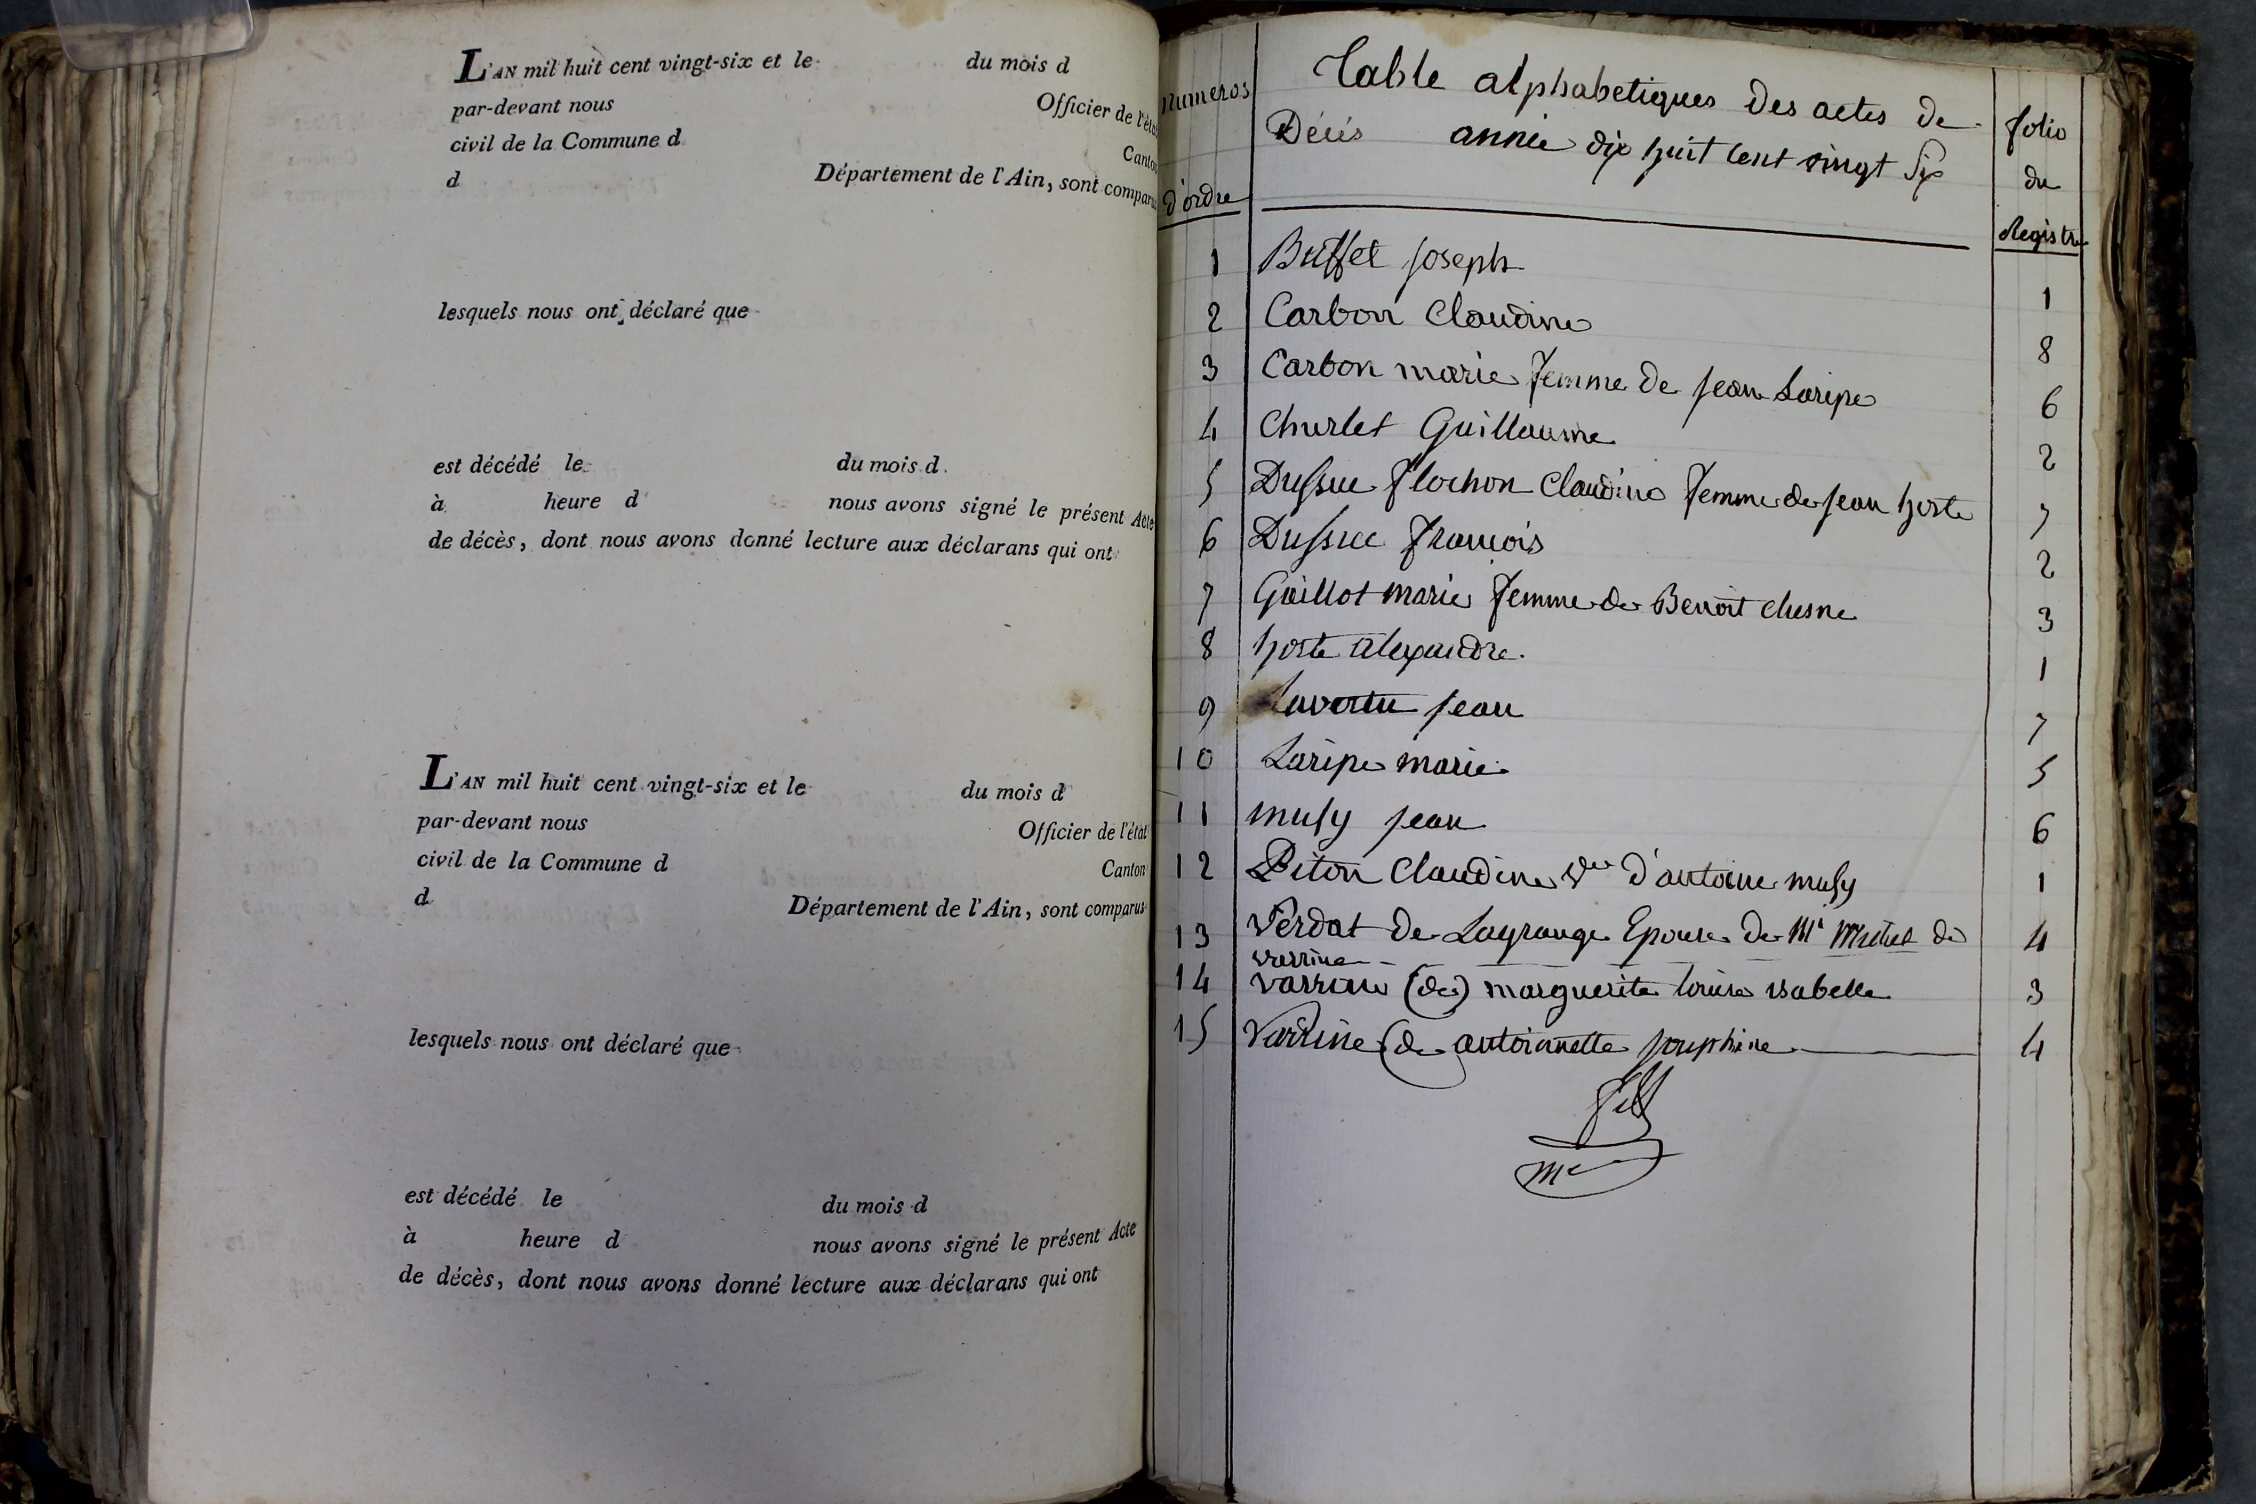 L'AN mil huit cent vingt-six et le du mois d
par-devant nous Officier de l'état
civil de la Commune d Canton
d Département de l'Ain, sont comparus
lesquels nous ont déclaré que
est décédé le du mois d
à heure d nous avons signé le présent Acte
de décès, dont nous avons donné lecture aux déclarans qui ont
L'AN mil huit cent vingt-six et le du mois d
par-devant nous Officier de l'état
civil de la Commune d Canton
d Département de l'Ain, sont comparus
lesquels nous ont déclaré que
est décédé le du mois d
à heure d nous avons signé le présent Acte
de décès, dont nous avons donné lecture aux déclarans qui ont
numeros d'ordre
Table alphabetiques Des actes de
Décés année dix huit cent vingt Six
folio du Registre
1 Buffet joseph 1
2 Carbon Claudine 8
3 Carbon marie femme de jean Laripe 6
4 Churlet Guillaume 2
5 Dussuc flochon Claudine femme de jean hoste 7
6 Dussuc francois 2
7 Guillot marie femme de Benoit chesne 3
8 hoste alexandre 1
9 Lavertu jean 7
10 Laripe marie 5
11 musy jean 6
12 Piton Claudine Vve d'antoine musy 1
13 Verdat de Lagrange Epouse de Mr Michel de 4
Varrine
14 varrine (de) marguerite louise isabelle 3
15 Varrine (de antoinette josephine 4